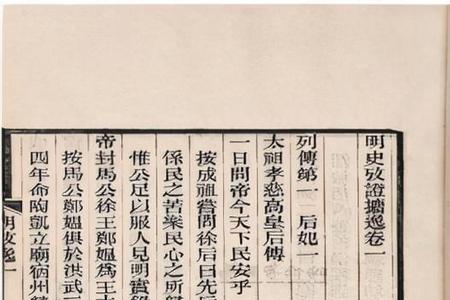 明史攷證攟逸卷一
列傳第一 后妃一
太祖孝慈高皇后傳
一日問帝今天下民安乎
按成祖嘗問徐后曰先后
係民之苦樂民心之所
惟公足以服人見明實
帝封馬公徐王鄭媼爲王
按馬公鄭媼俱於洪武
四年命陶凱立廟宿州
明攷一